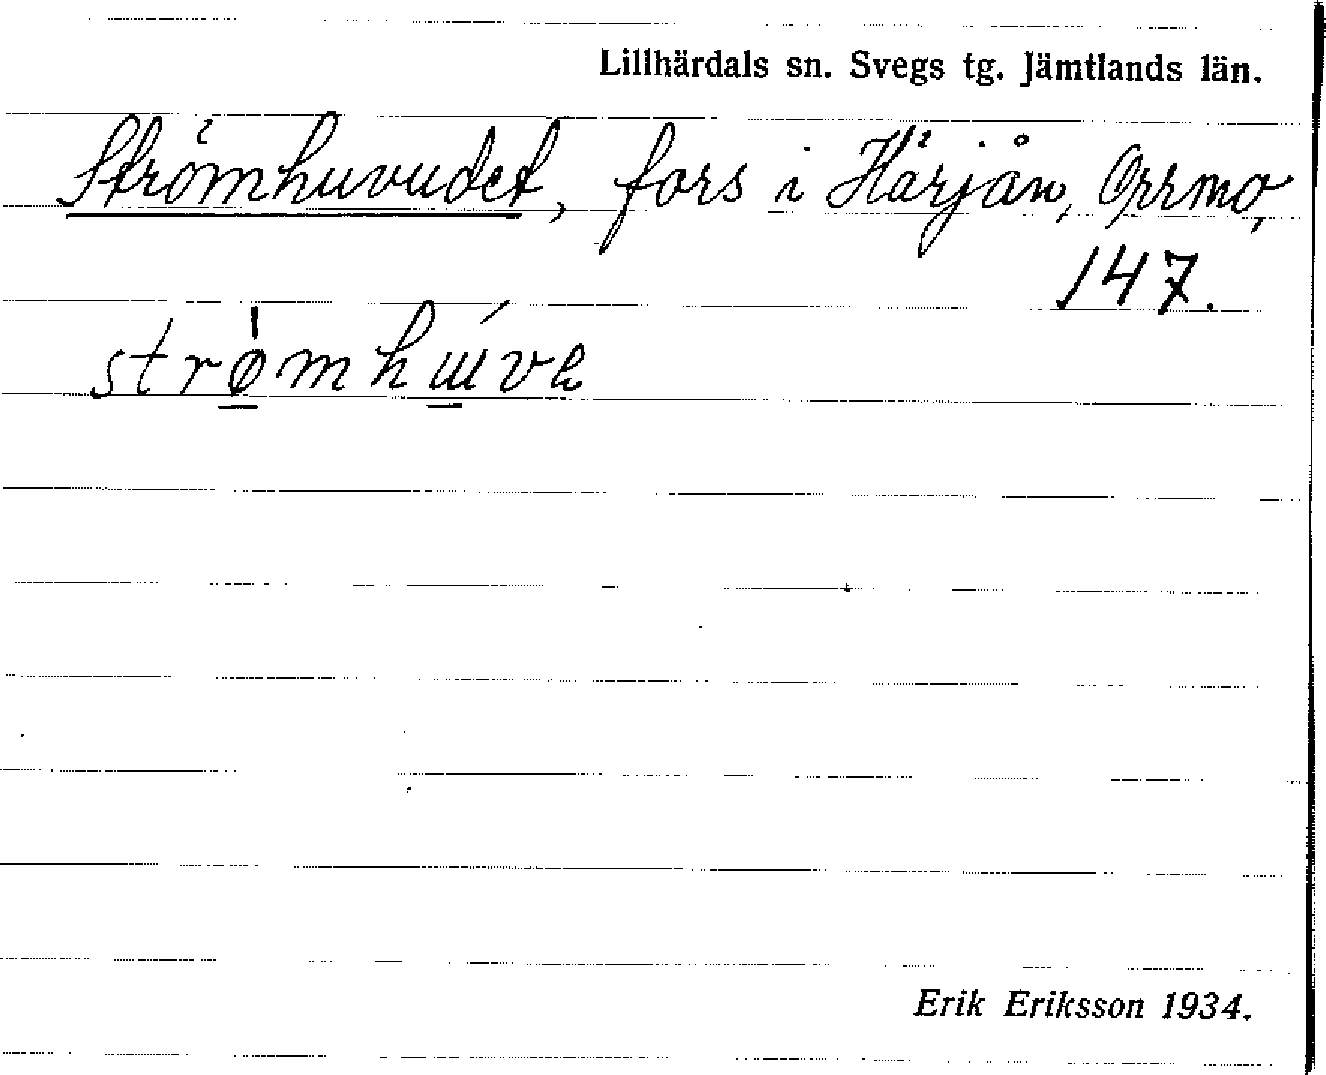 Lillhärdals sn. Svegs tg. Jämtlands län.
Strömhuvudet, fors i Härjån, Orrmo,
147.
strømhuve
Erik Eriksson 1934.